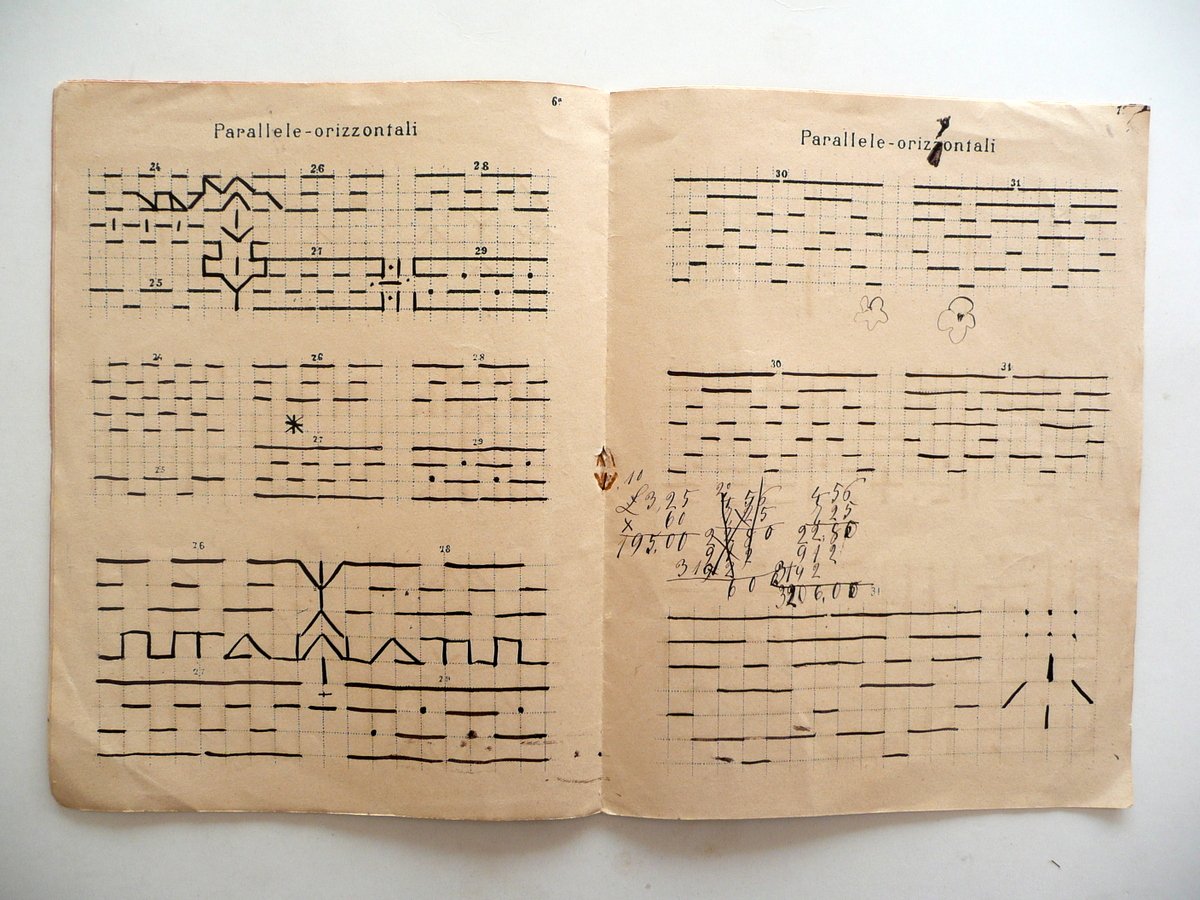 6ª
Parallele-orizzontali
24 26 28
27 29
25
24 26 28
27 29
25
26 28
27 29
Parallele-orizzontali
30 31
30 31
10
£3,25
x 60
195.00
456
22.80
912
3206.00
31